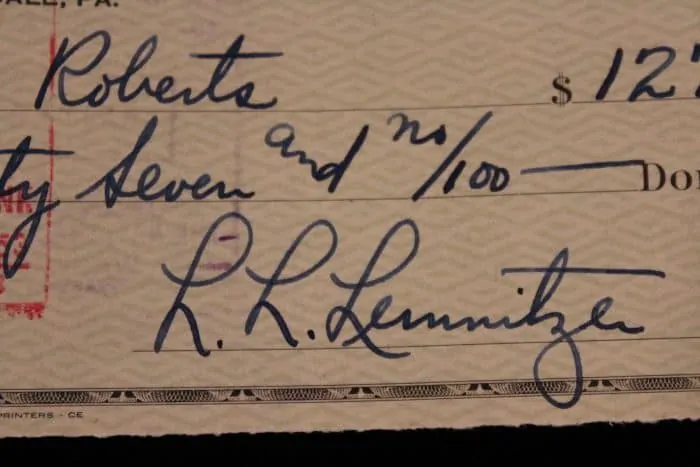 PA.
Roberts $ 127
ty Seven and no/100 — Do
L. L. Lemnitzer
PRINTERS - CE